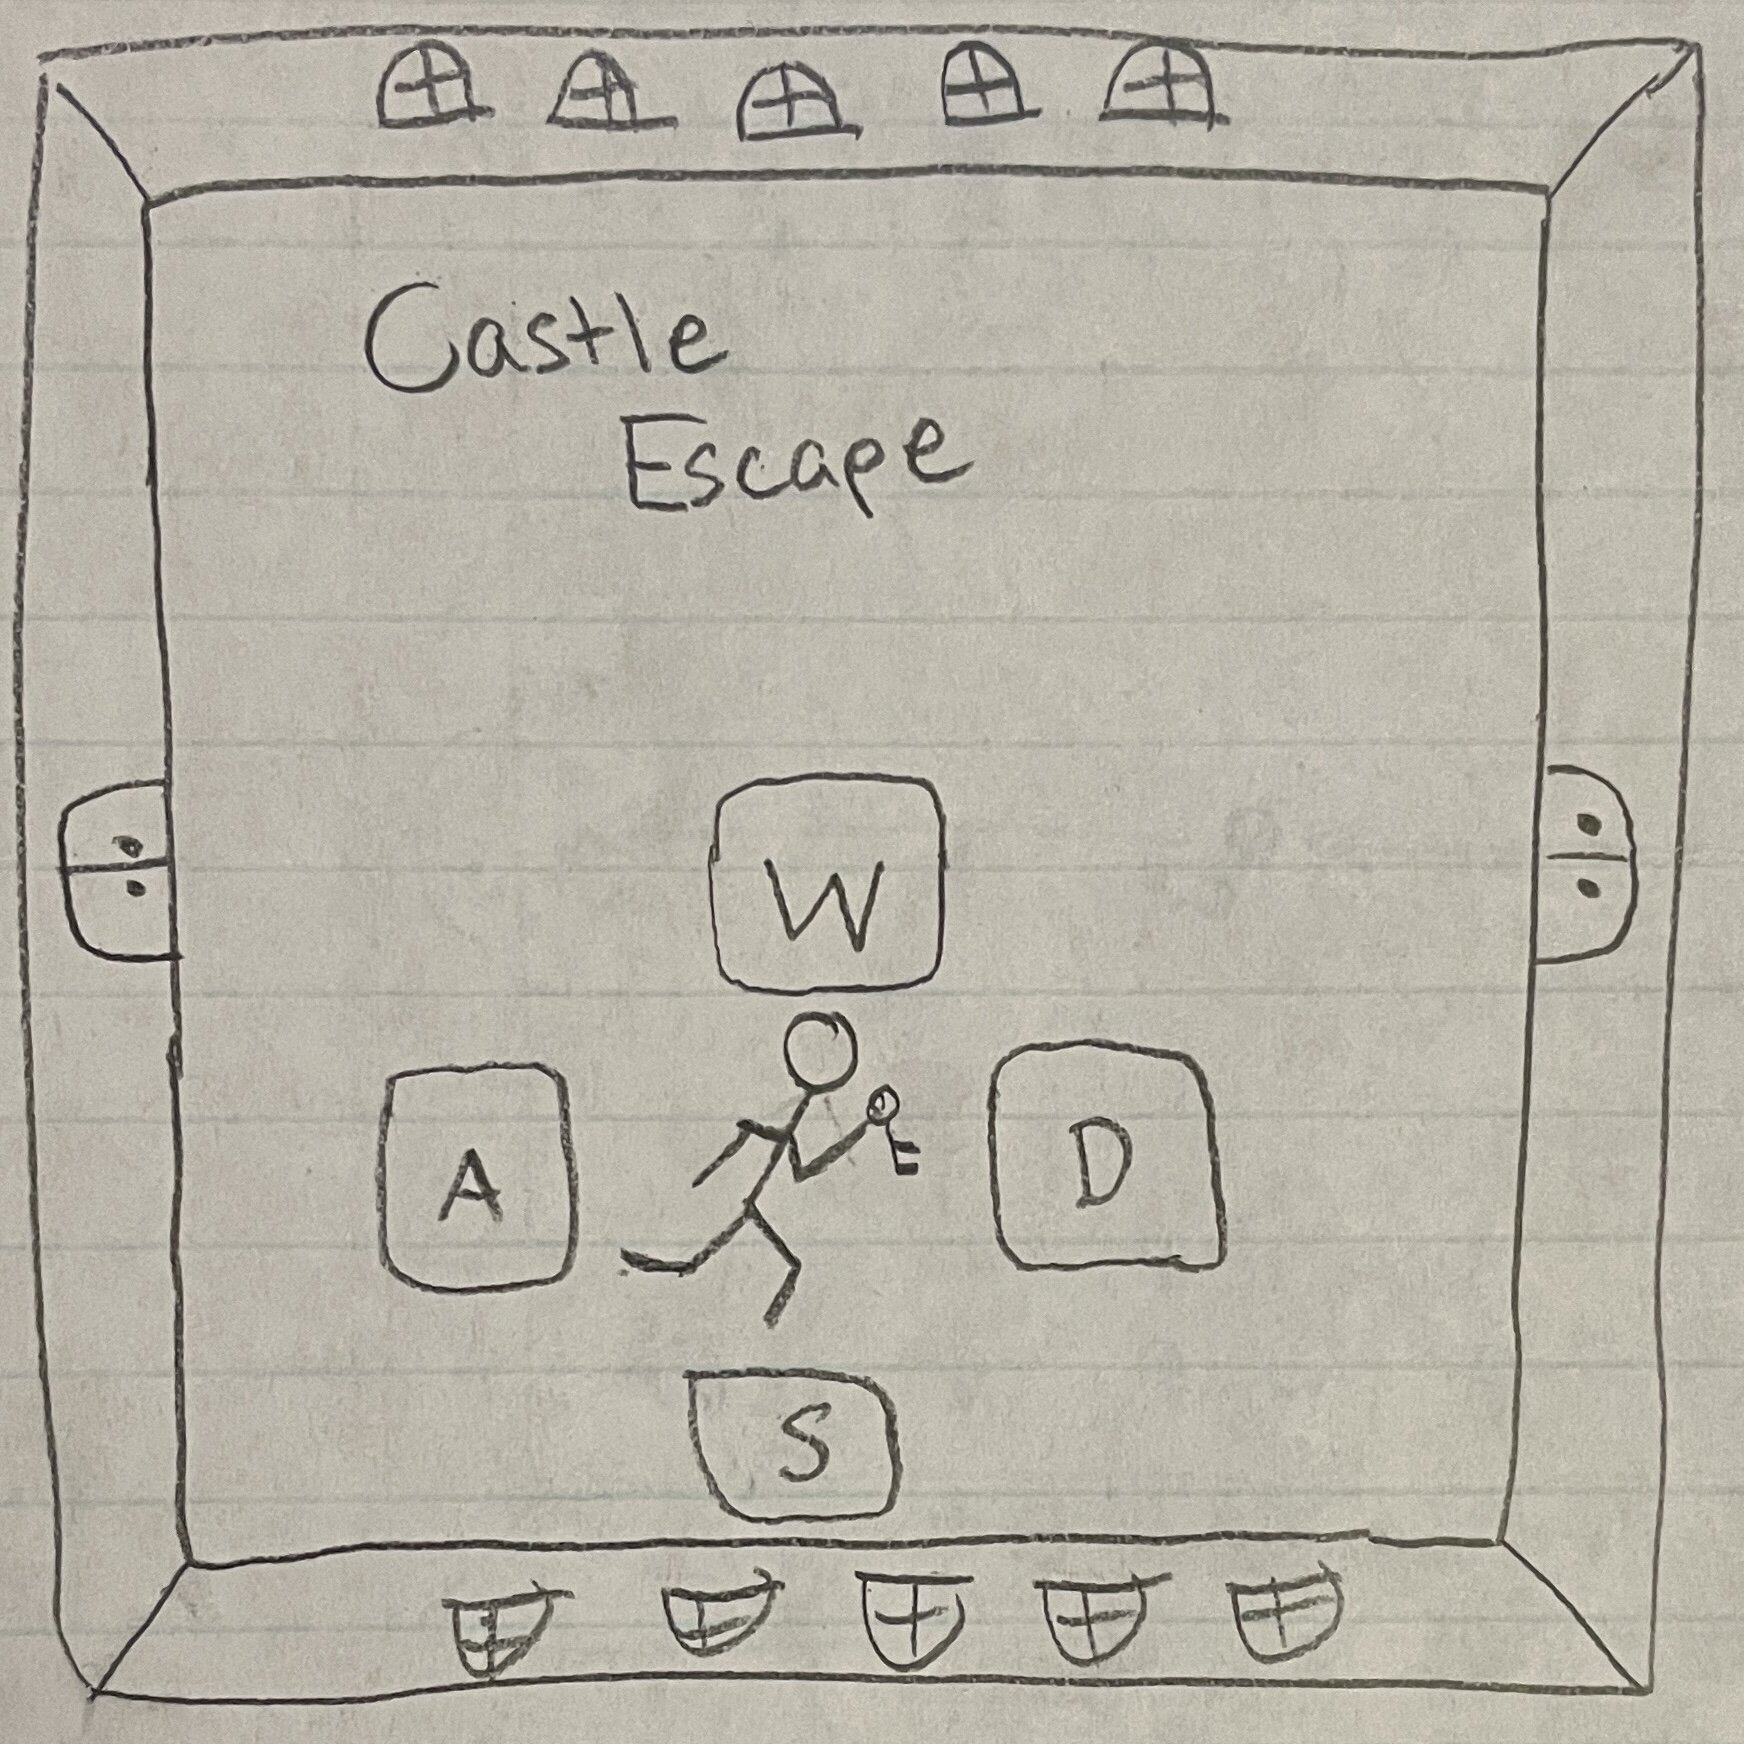 Castle
Escape
W
A
D
S